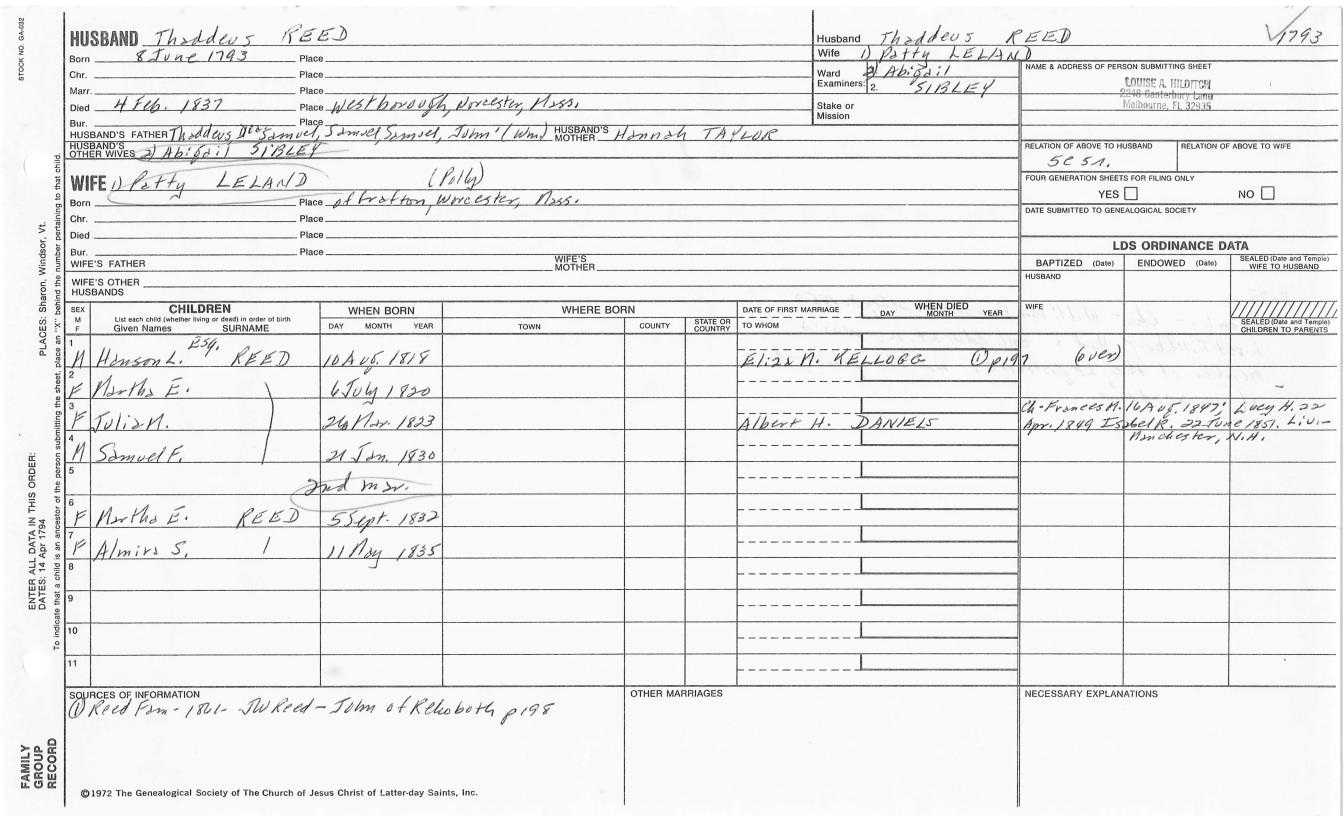 STOCK NO. GA-032
HUSBAND Thaddeus REED
Born 8 June 1793 Place
Chr. Place
Marr. Place
Died 4 Feb. 1837 Place Westborough, Worcester, Mass.
Bur. Place
HUSBAND'S FATHER Thaddeus Samuel, Samuel, Samuel, John (Wm) HUSBAND'S MOTHER Hannah TAYLOR
HUSBAND'S OTHER WIVES 2) Abigail SIBLEY
WIFE 1) Patty LELAND (Polly)
Born Place of Grafton, Worcester, Mass.
Chr. Place
Died Place
Bur. Place
WIFE'S FATHER WIFE'S MOTHER
WIFE'S OTHER HUSBANDS
Husband Thaddeus REED 1793
Wife 1) Patty LELAND
Ward 2) Abigail
Examiners: 2. SIBLEY
Stake or Mission
NAME & ADDRESS OF PERSON SUBMITTING SHEET
LOUISE A. HILDITCH
2246 Canterbury Lane
Melbourne, FL 32935
RELATION OF ABOVE TO HUSBAND RELATION OF ABOVE TO WIFE
FOUR GENERATION SHEETS FOR FILING ONLY
YES NO
DATE SUBMITTED TO GENEALOGICAL SOCIETY
LDS ORDINANCE DATA
BAPTIZED (Date) ENDOWED (Date) SEALED (Date and Temple) WIFE TO HUSBAND
HUSBAND
WIFE
SEALED (Date and Temple) CHILDREN TO PARENTS
SEX M F CHILDREN WHEN BORN WHERE BORN DATE OF FIRST MARRIAGE WHEN DIED
List each child (whether living or dead) in order of birth
Given Names SURNAME DAY MONTH YEAR TOWN COUNTY STATE OR COUNTRY TO WHOM DAY MONTH YEAR
1 M Hanson L. Esq. REED 10 Aug. 1818 Eliza M. KELLOGG ① p197 (over)
2 F Martha E. 6 July 1820
3 F Julia M. 26 Mar. 1823 Albert H. DANIELS Ch-Frances M. 16 Aug. 1847; Lucy H. 22
Apr. 1849 Isabel R. 22 June 1851. Liv. -
Manchester, N.H.
4 M Samuel F. 21 Jan. 1830
5 2nd mar.
6 F Martha E. REED 5 Sept. 1832
7 F Almira S. 11 May 1835
8
9
10
11
SOURCES OF INFORMATION OTHER MARRIAGES NECESSARY EXPLANATIONS
① Reed Fam - 1861 - JW Reed - John of Rehoboth p198
©1972 The Genealogical Society of The Church of Jesus Christ of Latter-day Saints, Inc.
FAMILY GROUP RECORD
ENTER ALL DATA IN THIS ORDER:
DATES: 14 Apr 1794
PLACES: Sharon, Windsor, Vt.
To indicate that a child is an ancestor of the person submitting the sheet, place an "X" behind the number pertaining to that child.